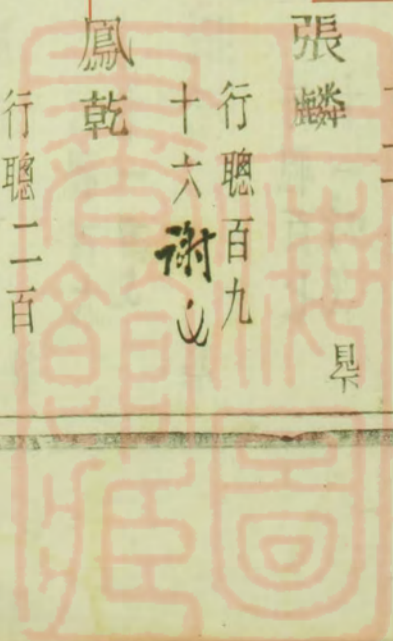 張麟
見下
行聰百九
十六謝
鳳乾
行聰二百